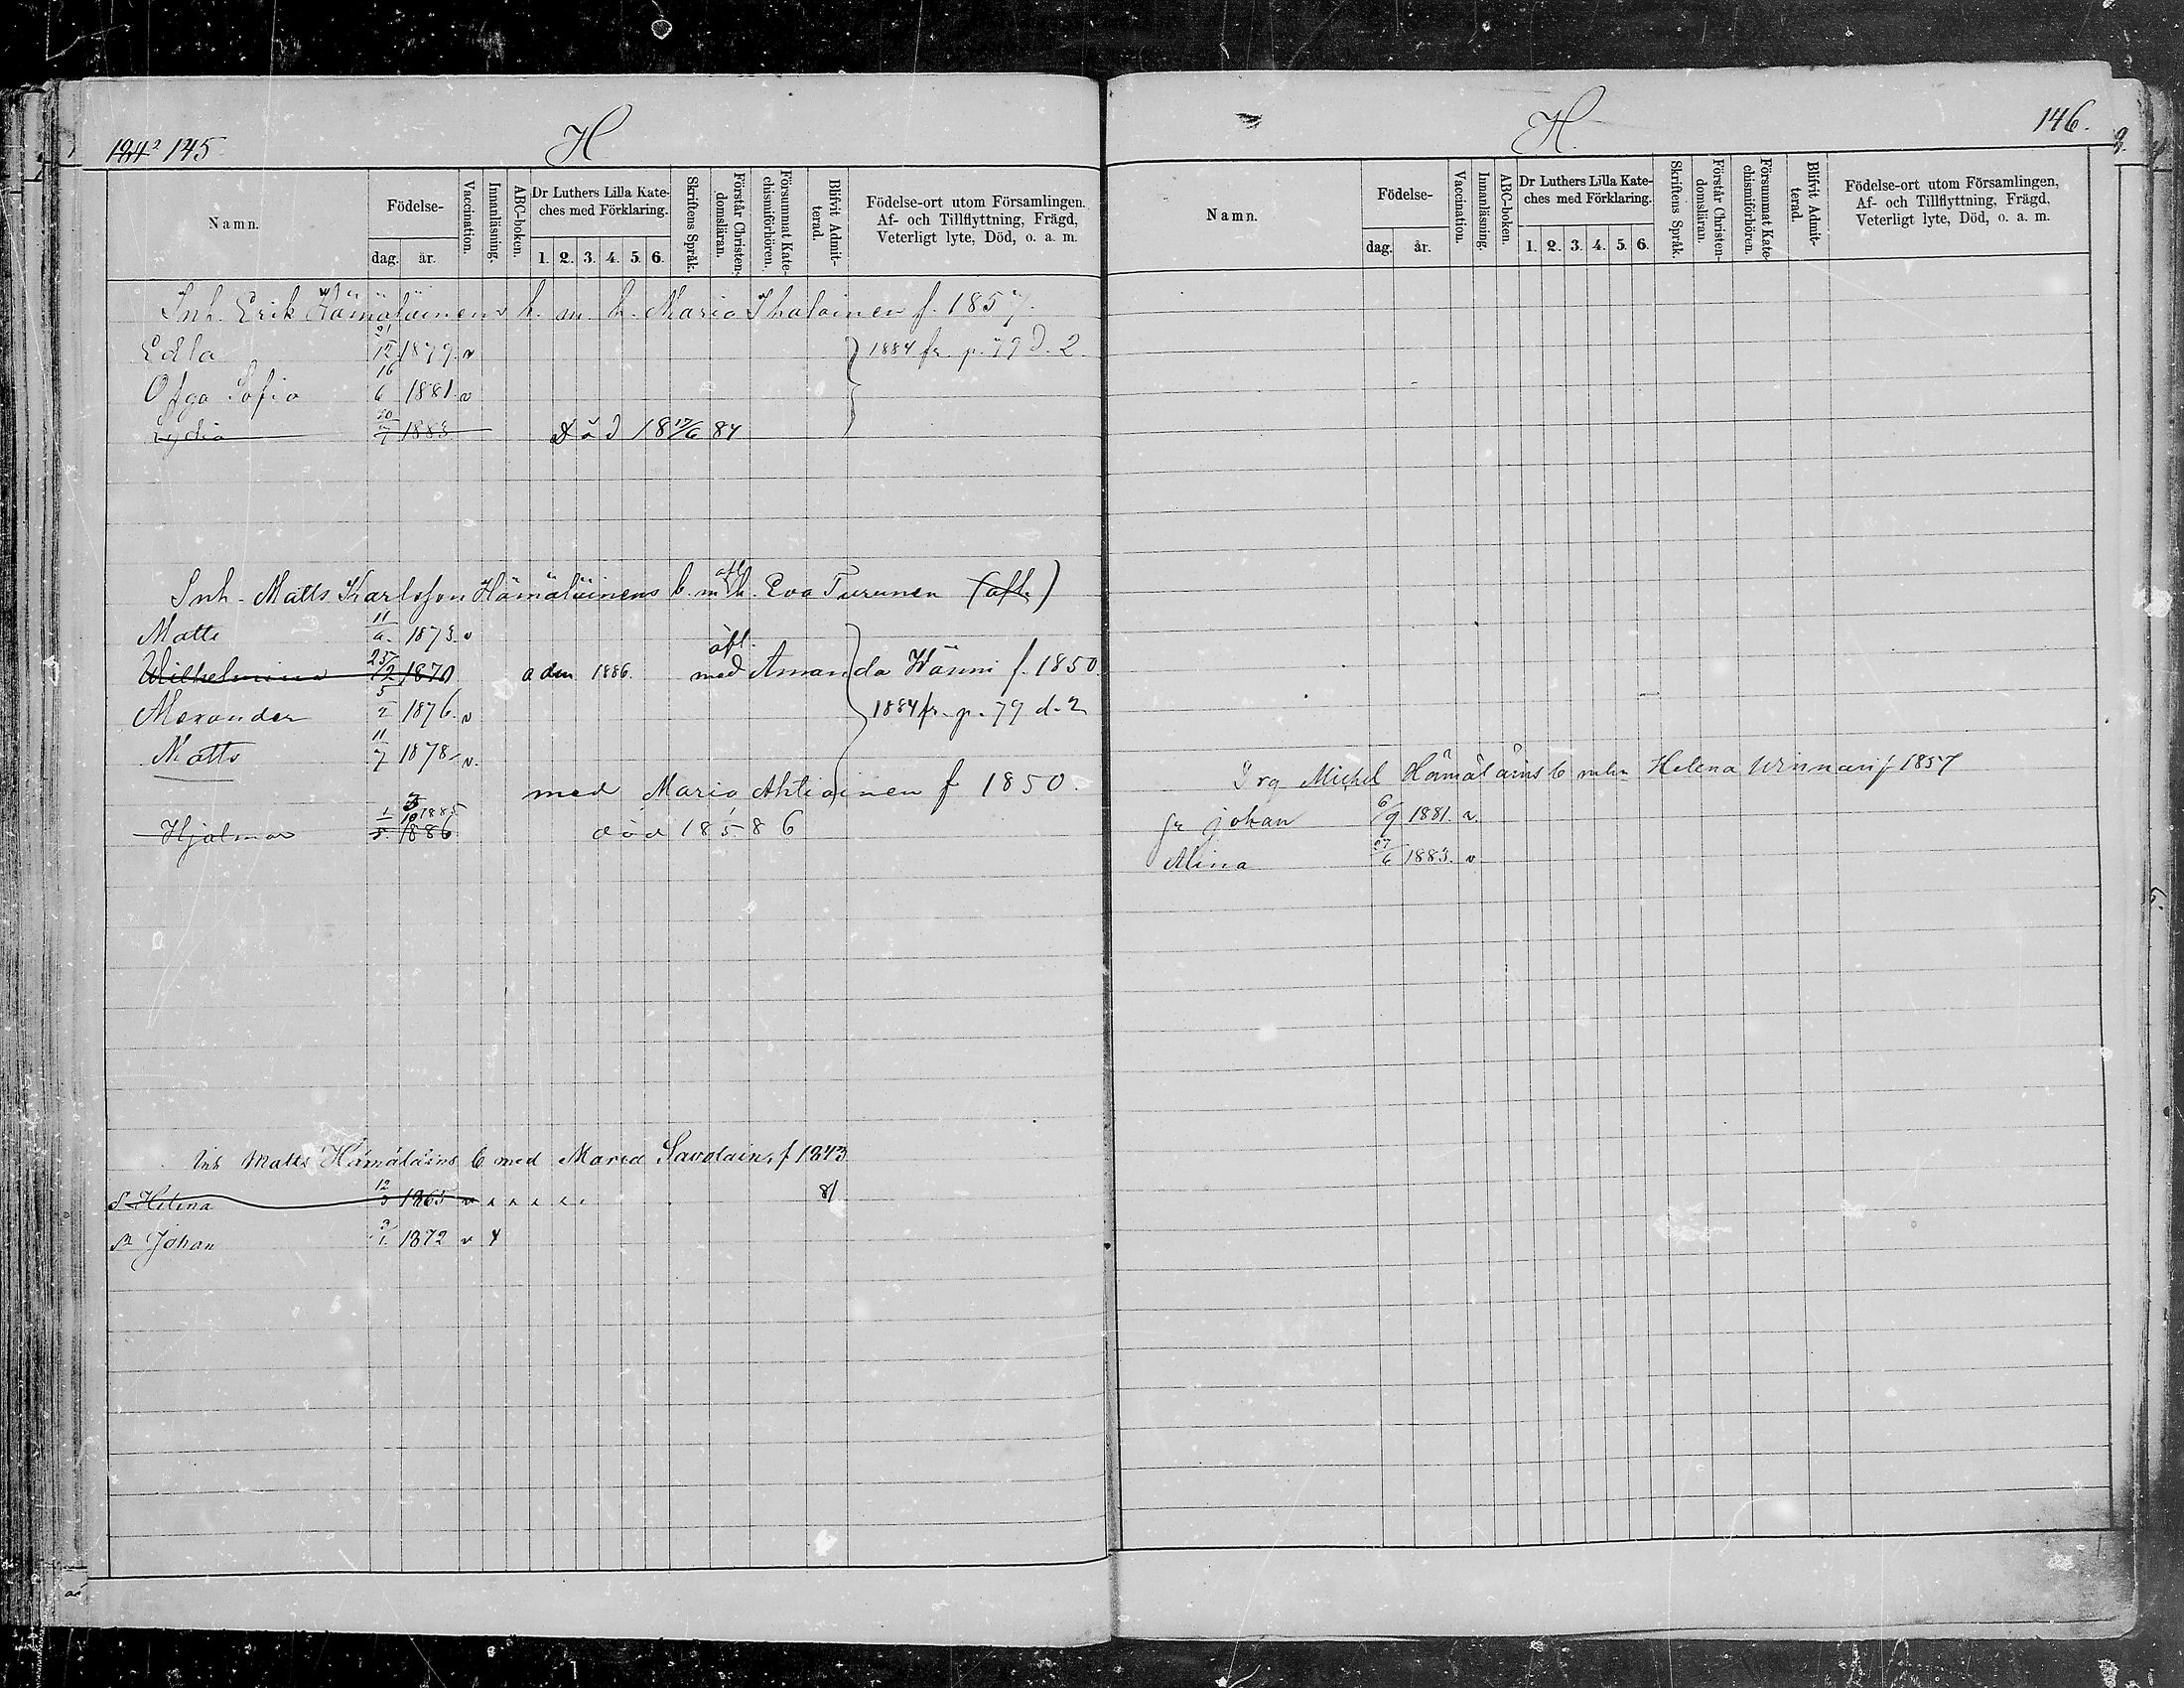 145
H
Namn.
Födelse-
dag.
år.
Vaccination.
Innanläsning.
ABC-boken.
Dr Luthers Lilla Kate-
ches med Förklaring.
1. 2. 3. 4. 5. 6.
Skriftens Språk.
Förstår Christen-
domsläran.
Försummat Kate-
chismiförhören.
Blifvit Admit-
terad.
Födelse-ort utom Församlingen,
Af- och Tillflyttning, Frägd,
Veterligt lyte, Död, o. a. m.
Inh. Erik Hämäläinens b. m. h. Maria Ihalainen f. 1857.
Edla 12 1879. v 1884 fr. p. 79 d. 2.
Olga Sofia 16/6 1881. v
Lydia 20/7 1883 Död 18 17/6 84
Inh. Matts Karlsson Hämäläinens b. m. afl. h. Eva Turunen (afl.)
Matts 1873. v
Wilhelmina 25/12 1870 a den 1886. med afl. Amanda Wänni f. 1850.
Alexander 5/2 1876. v 1884 fr. p. 79 d. 2
Matts 11/7 1878. v.
med Maria Ahtiainen f 1850.
1885
Hjalmar 1886 död 18 5 86
Inh Matts Hämäläins b med Maria Savolain. f 1843
Helena 12 1865 v 81
Johan 1872 v
H.
146.
Namn.
Födelse-
dag.
år.
Vaccination.
Innanläsning.
ABC-boken.
Dr Luthers Lilla Kate-
ches med Förklaring.
1. 2. 3. 4. 5. 6.
Skriftens Språk.
Förstår Christen-
domsläran.
Försummat Kate-
chismiförhören.
Blifvit Admit-
terad.
Födelse-ort utom Församlingen,
Af- och Tillflyttning, Frägd,
Veterligt lyte, Död, o. a. m.
Drg Michel Hämäläins b Helena f 1857
johan 6/9 1881. v.
Alina 27/6 1883. v